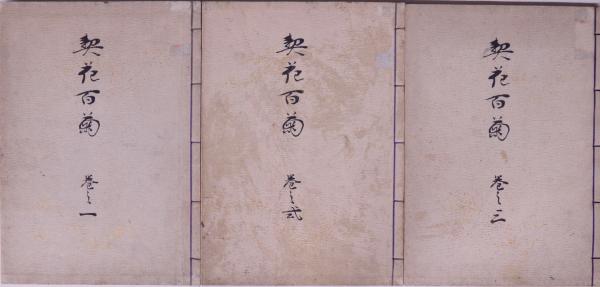 契花百菊
巻之一
契花百菊
巻之弐
契花百菊
巻之三